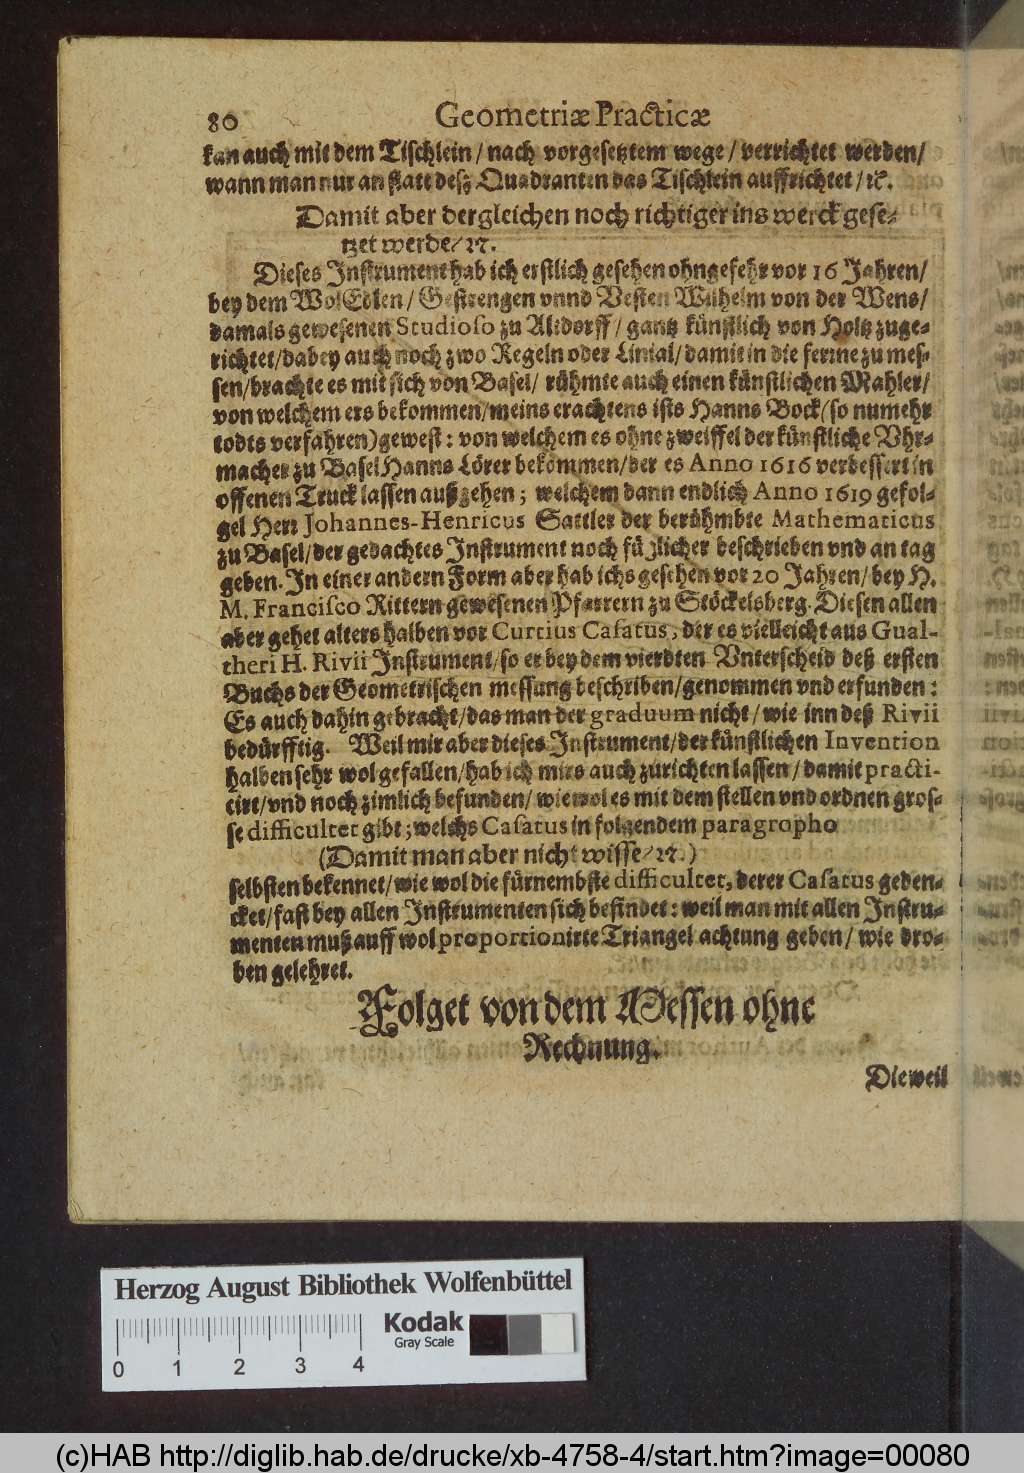 80 Geometriæ Practicæ
kan auch mit dem Tischlein / nach vorgesetztem wege / verrichtet werden /
wann man nur an statt deß Quadranten das Tischlein auffrichtet / ꝛc.
Damit aber dergleichen noch richtiger ins werck gese-
tzet werde / ꝛc.
Dieses Instrument hab ich erstlich gesehen ohngefehr vor 16 Jahren /
bey dem WolEdlen / Gestrengen vnnd Vesten Wilhelm von der Wens /
damals gewesenen Studioso zu Altdorff / gantz künstlich von Holtz zuge-
richtet / dabey auch noch zwo Regeln oder Linial / damit in die ferrne zu mes-
sen / brachte es mit sich von Basel / rühmte auch einen künstlichen Mahler /
von welchem ers bekommen / meins erachtens ists Hanns Bock (so numehr
todts verfahren) gewest: von welchem es ohne zweiffel der künstliche Vhr-
macher zu Basel Hanns Lörer bekommen / der es Anno 1616 verbessert in
offenen Truck lassen außgehen; welchem dann endlich Anno 1619 gefol-
gel Herr Johannes-Henricus Sattler der berühmbte Mathematicus
zu Basel / der gedachtes Instrument noch füglicher beschrieben vnd an tag
geben. In einer andern Form aber hab ichs gesehen vor 20 Jahren / bey H.
M. Francisco Rittern gewesenen Pfarrern zu Stöckelsberg. Diesen allen
aber gehet alters halben vor Curtius Casatus, der es vielleicht aus Gual-
theri H. Rivii Instrument / so er bey dem vierdten Vnterscheid deß ersten
Buchs der Geometrischen messung beschriben / genommen vnd erfunden:
Es auch dahin gebracht / das man der graduum nicht / wie inn deß Rivii
bedürfftig. Weil mir aber dieses Instrument / der künstlichen Invention
halben sehr wol gefallen / hab ich mirs auch zurichten lassen / damit practi-
cirt / vnd noch zimlich befunden / wiewol es mit dem stellen vnd ordnen gros-
se difficultet gibt; welchs Casatus in folgendem paragropho
(Damit man aber nicht wisse / ꝛc.)
selbsten bekennet / wie wol die fürnembste difficultet, derer Casatus geden-
cket / fast bey allen Instrumenten sich befindet: weil man mit allen Instru-
menten muß auff wol proportionirte Triangel achtung geben / wie dro-
ben gelehret.
Folget von dem Messen ohne
Rechnung.
Dieweil
Herzog August Bibliothek Wolfenbüttel
Kodak
Gray Scale
0 1 2 3 4
(c)HAB http://diglib.hab.de/drucke/xb-4758-4/start.htm?image=00080